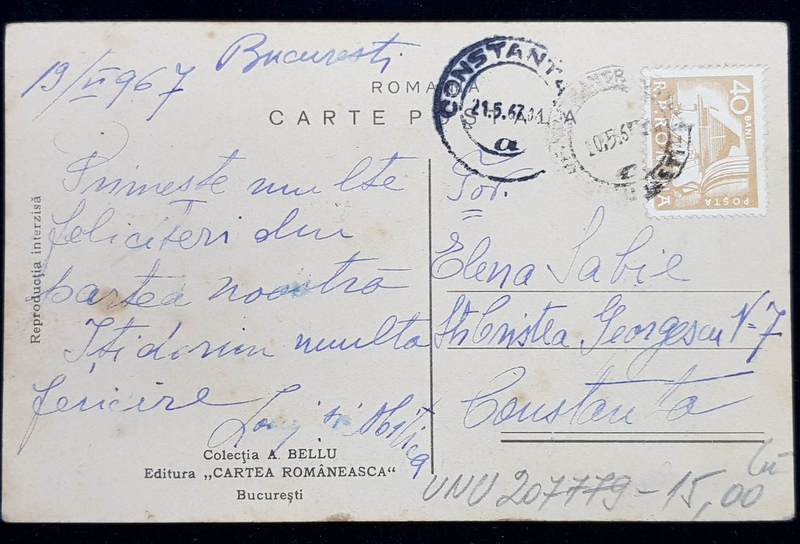 București
19/VI 967
ROMANIA
CARTE POȘTALA
CONSTANTA
21.5.67
a
20.5.6
40 BANI
R.P.ROMINA
POSTA
Reproducția interzisă
Primește multe
feliciteri din
partea noastră
Iți dorim multa
fericire
Tov.
Elena Sabie
Str Cristea Georgescu N-7
Constanta
Colecția A. BELLU
Editura „CARTEA ROMÂNEASCA“
București
VNU 207779-15,00